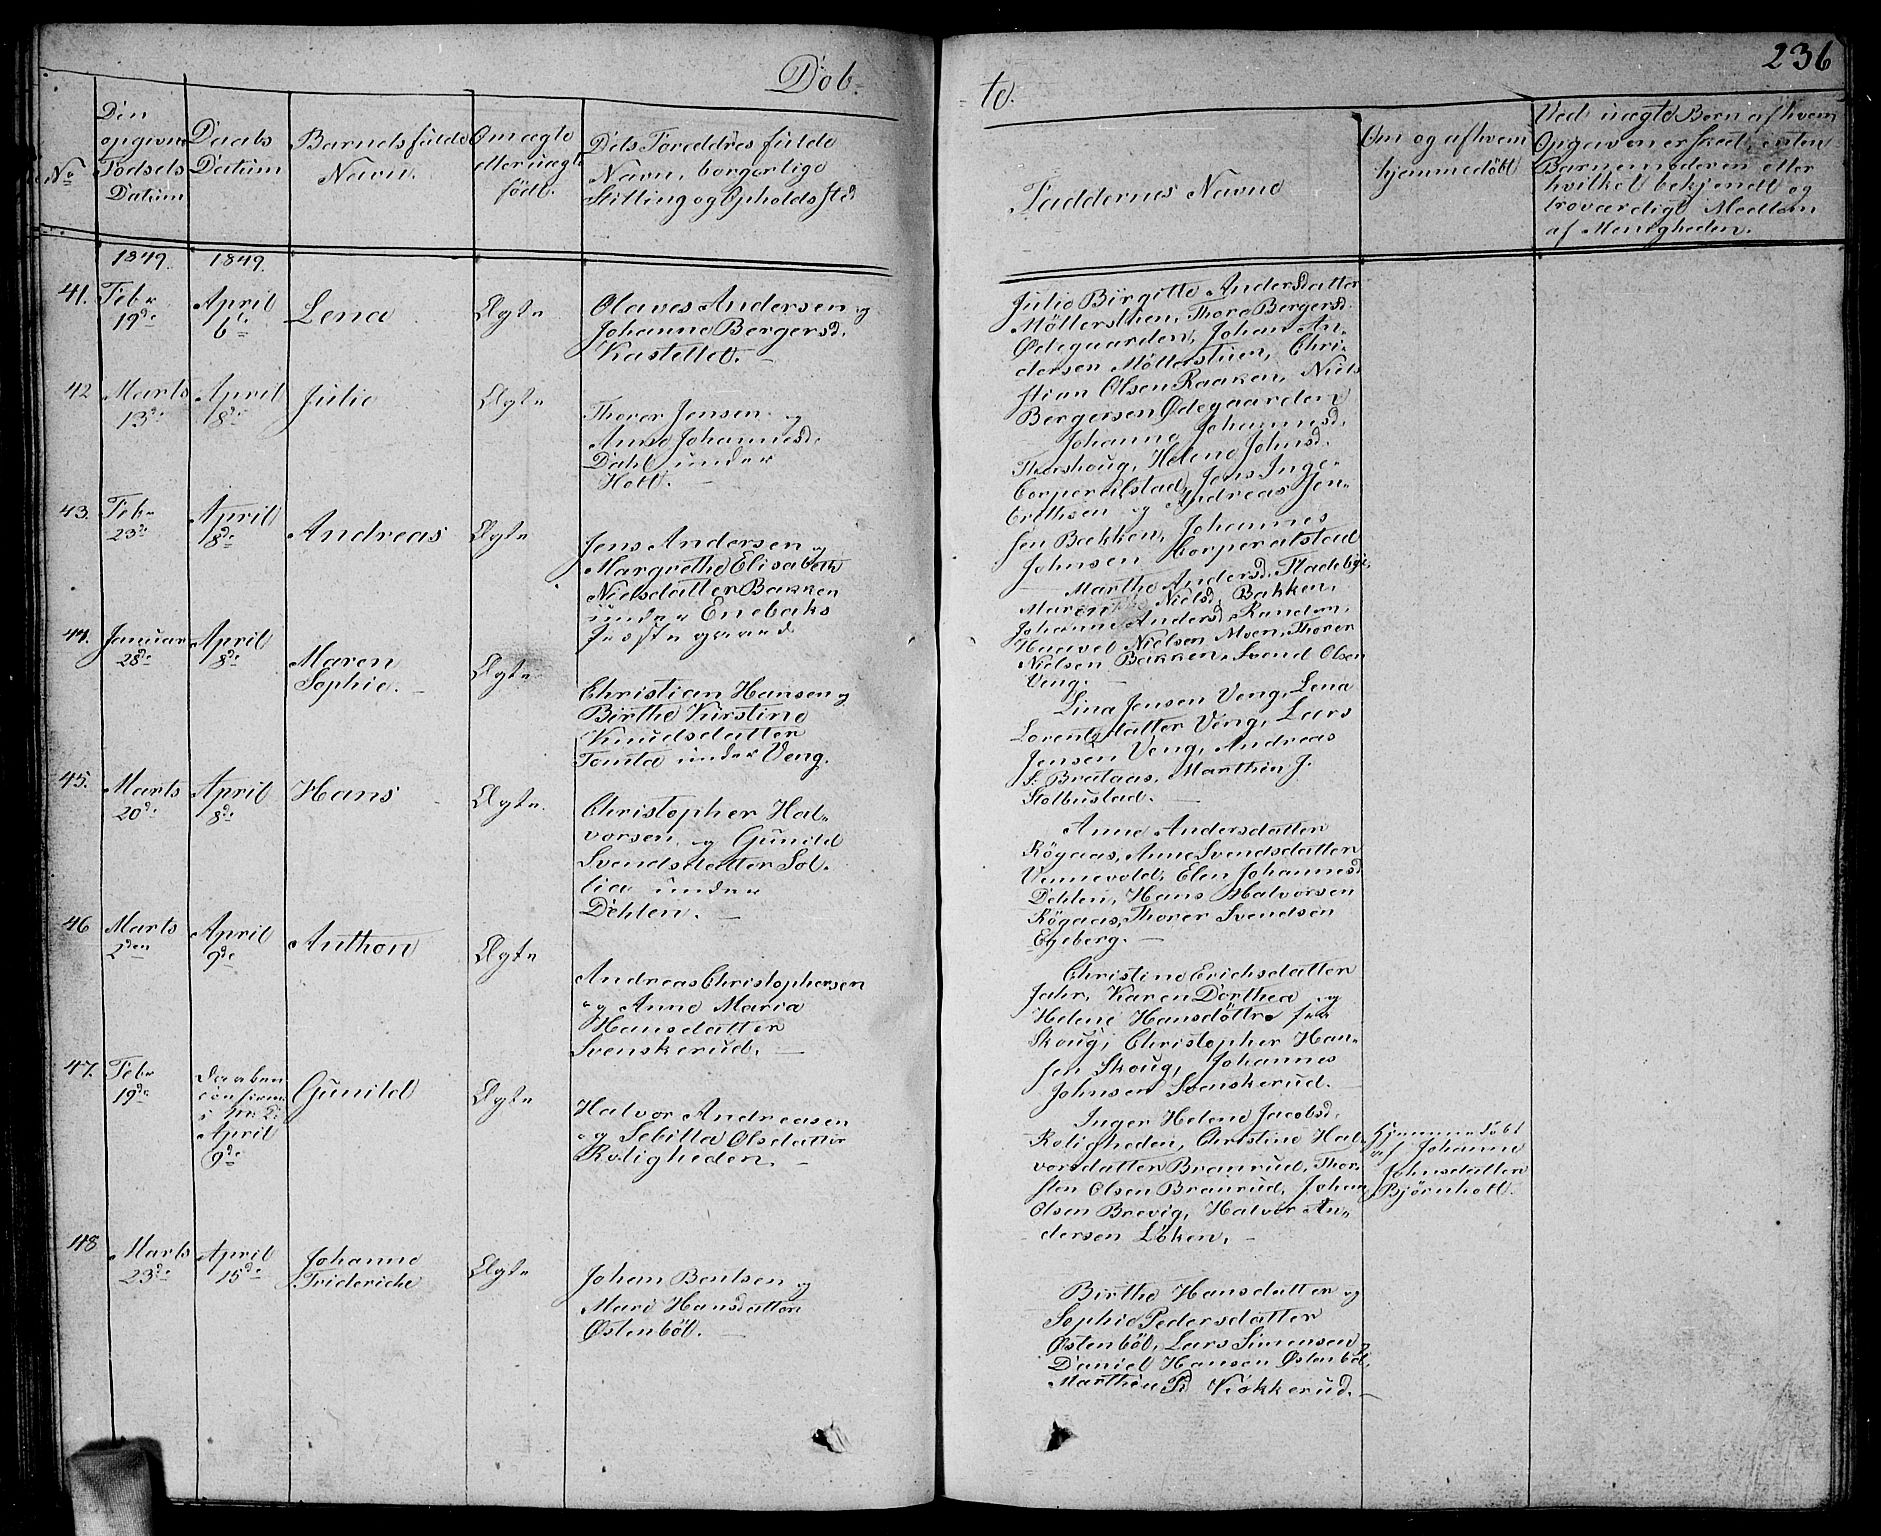 236
Döb-
-te.
No
Den
opgivne
Födsels
Datum
Daabs
Datum
Barnets fulde
Navn.
Om ægte
eller uægte
födt.
Dets Foreldres fulde
Navn, borgerlige
Stilling og Opholds Sted
Faddernes Navne
Om og af hvem
hjemmedöbt
Ved uægte Börn af hvem
Opgaven er skeet, enten
Barnemoderen eller
hvilket bekjendt og
troværdigt Medlem
af Menigheden.
1849.
1849.
41.
Febr
19de
April
6te
Lena
Ægte
Olaves Andersen og
Johanne Bergersd.
Kastellet. -
Julie Birgitte Andersdatter
Möllerstuen, Thore Bergersd.
Ødegaarden, Johan An-
dersen Möllerstuen, Chri-
stian Olsen Raaken, Niels
Bergersen Ødegaarden
42
Marts
13de
April
8de
Julie
Ægte
Thorer Jensen og
Anne Johannesd.
Dahl under
Holt. -
Johanne Johannesd.
Thorshoug, Helene Johnsd.
Corperalstad, Jens Inge-
brethsen og Andreas Jen-
sen Bakken, Johannes
Johnsen Corperalstad
43.
Febr
23de
April
8de
Andreas
Ægte
Jens Andersen og
Margrethe Elisabeth
Nielsdatter Bakken
under Enebaks
Præstegaard
Marthe Andersd. Stadsbye,
Maren Nielsd. Bakken,
Johanne Andersd. Randem,
Haavel Nielsen Moen, Thorer
Nielsen Bakken, Svend Olsen
Veng. -
44.
Januar
28de
April
8de
Maren
Sophie. -
Ægte
Christian Hansen og
Birthe Kirstine
Knudsdatter
Tomta under Veng.
Lina Jensen Veng, Lena
Lorentzdatter Veng, Lars
Jensen Veng, Andreas
S. Brataas, Marthin J.
Stolbustad. -
45.
Marts
20de
April
8de
Hans
Ægte.
Christopher Hal-
vorsen og Gunild
Svendsdatter Sol-
lia under
Dehlen. -
Anne Andersdatter
Rögaas, Anne Svendsdatter
Vennevold, Elen Johannesd
Dehlen, Hans Halvorsen
Rögaas, Thorer Svendsen
Egeberg. -
46
Marts
2den
April
9de
Anthon
Ægte
Andreas Christophersen
og Anne Maria
Hansdatter
Svenskerud. -
Christine Erichsdatter
Jahr, Karen Dorthea og
Helene Hansdöttre fra
Skoug, Christopher Han-
sen Skoug, Johannes
Johnsen Svenskerud.
47.
Febr
19de
Daaben
confirm
April
9de
Gunild
Ægte
Halvor Andreasen
og Sebilla Olsdatter
Roligheden. -
Inger Helene Jacobsd.
Roligheden, Christine Hal-
vorsdatter Branrud, Thor-
sten Olsen Branrud, Johan
Olsen Brevig, Halvor An-
dersen Löken. -
Hjemmedöbt
af Johanne
Johnsdatter
Björnholt.
48
Marts
23de
April
15de
Johanne
Frideriche
Ægte
Johan Bentsen og
Mari Hansdatter
Østenböl. -
Birthe Hansdatter og
Sophie Pedersdatter
Østenböl, Lars Simensen
Daniel Hansen Østenböl,
Marthin Pd Kiökkerud. -